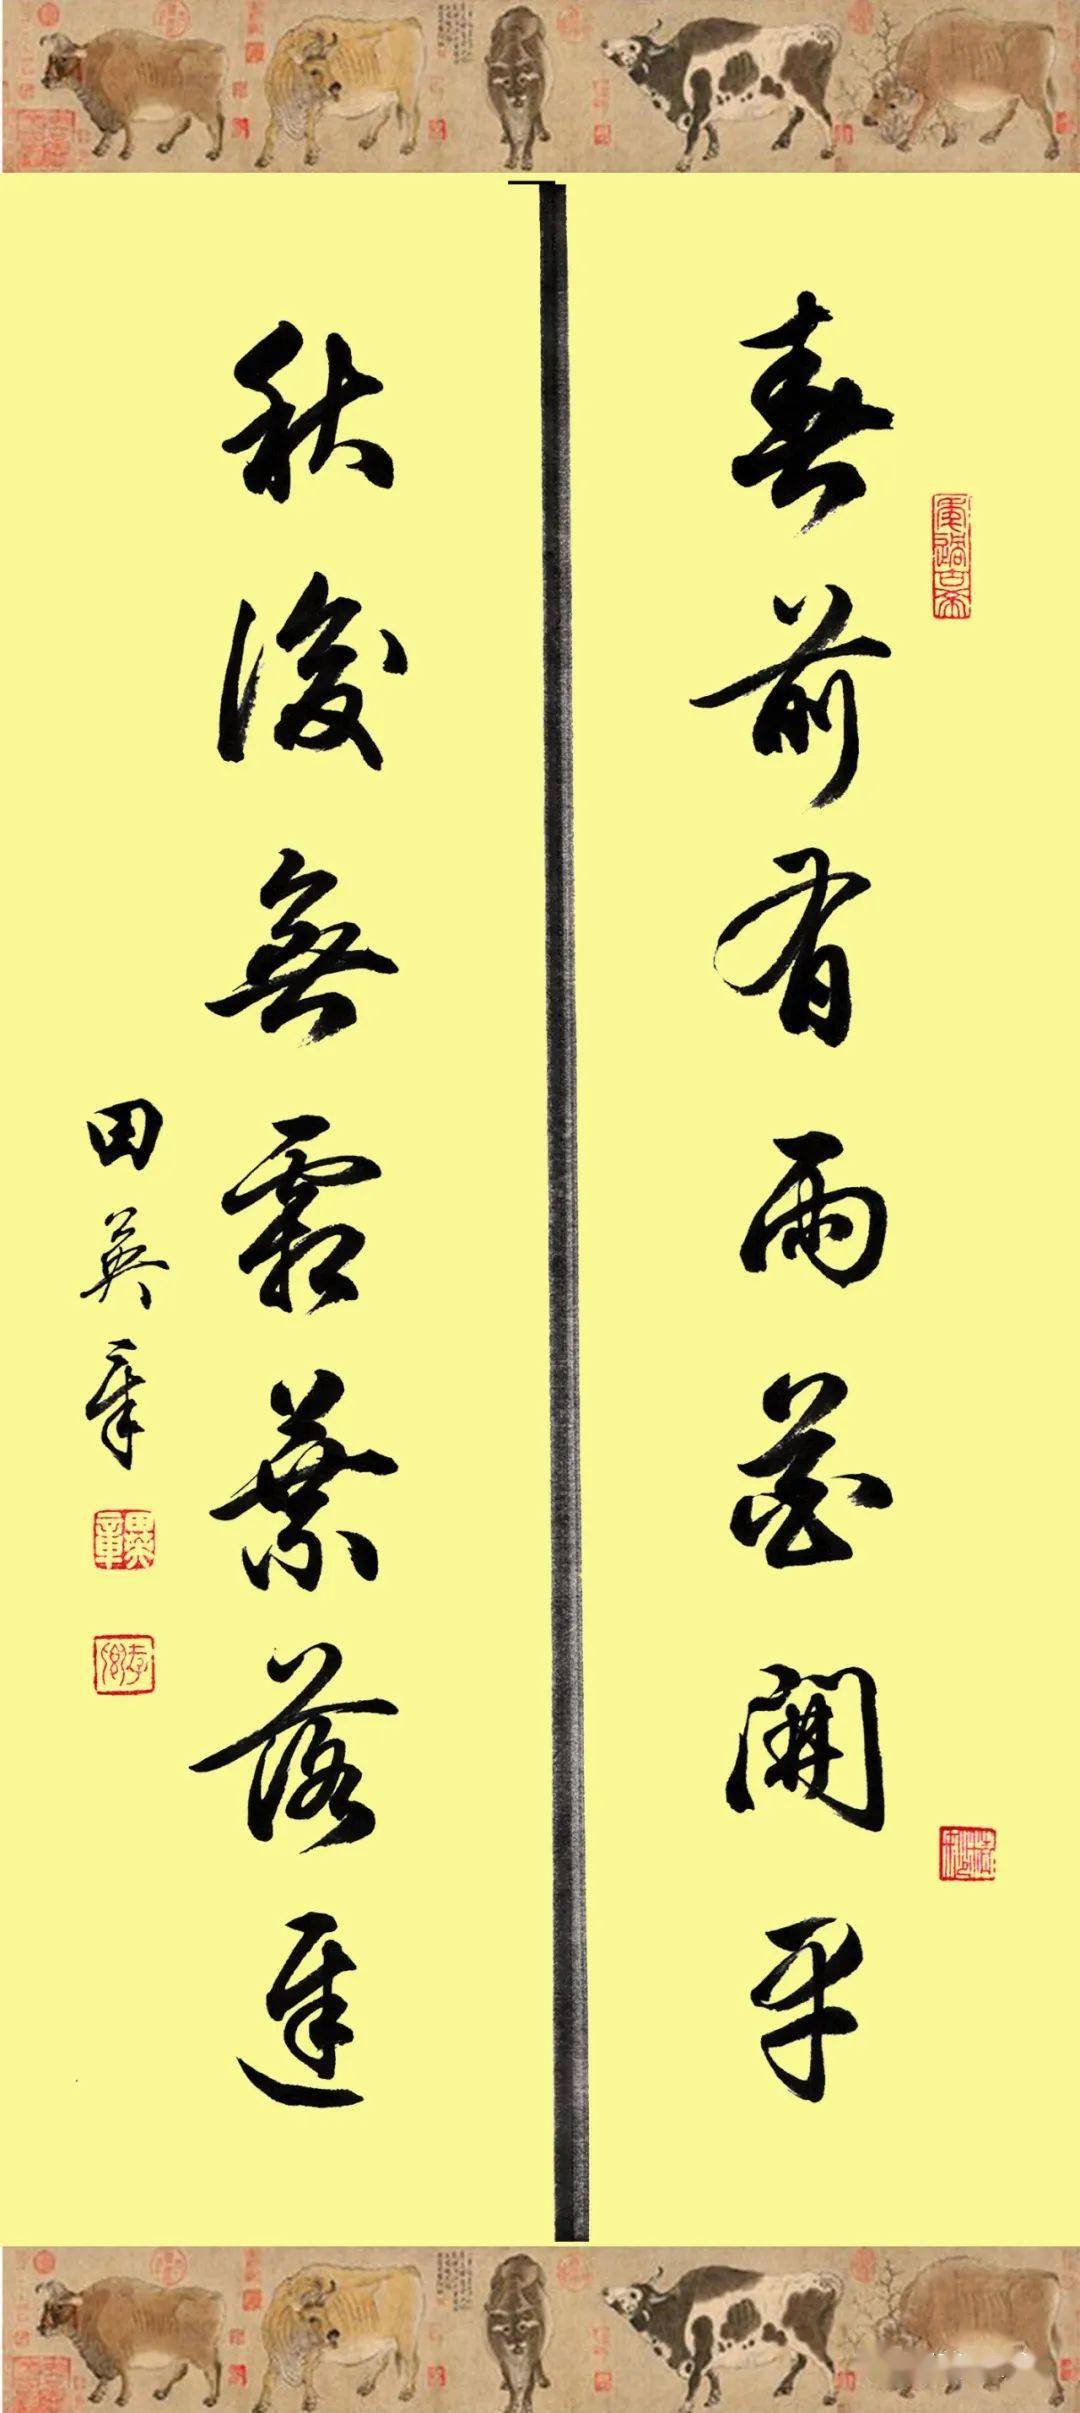 春前有雨花開早
秋後無霜葉落遲
田英章